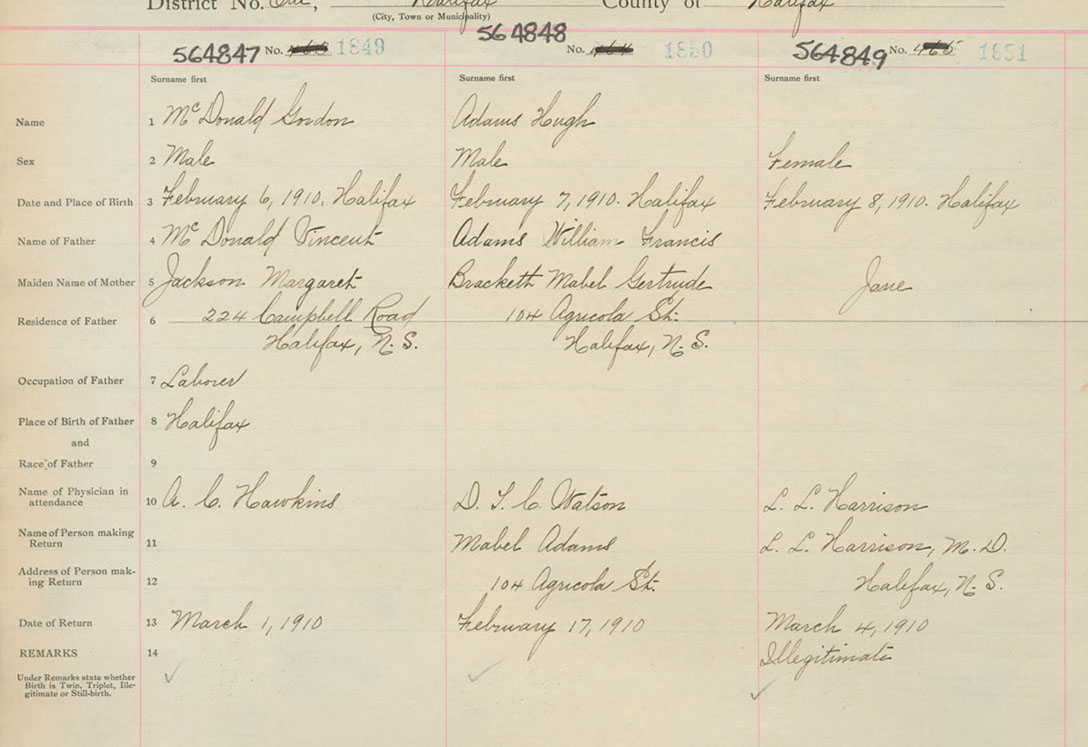 District No. One, Halifax County of Halifax
(City, Town or Municipality)
564847 No. 1849 564848 No. 1850 564849 No. 465 1851
Surname first Surname first Surname first
Name 1 McDonald Gordon Adams Hugh
Sex 2 Male Male Female
Date and Place of Birth 3 February 6, 1910. Halifax February 7, 1910. Halifax February 8, 1910. Halifax
Name of Father 4 McDonald Vincent Adams William Francis
Maiden Name of Mother 5 Jackson Margaret Brackett Mabel Gertrude Jane
Residence of Father 6 224 Campbell Road 104 Agricola St.
Halifax, N.S. Halifax, N.S.
Occupation of Father 7 Laborer
Place of Birth of Father 8 Halifax
and
Race of Father 9
Name of Physician in
attendance 10 A. C. Hawkins D. T. C. Watson L. L. Harrison
Name of Person making
Return 11 Mabel Adams L. L. Harrison, M.D.
Address of Person mak-
ing Return 12 104 Agricola St. Halifax, N.S.
Date of Return 13 March 1, 1910 February 17, 1910 March 4, 1910
REMARKS 14 Illegitimate
Under Remarks state whether
Birth is Twin, Triplet, Ille-
gitimate or Still-birth.